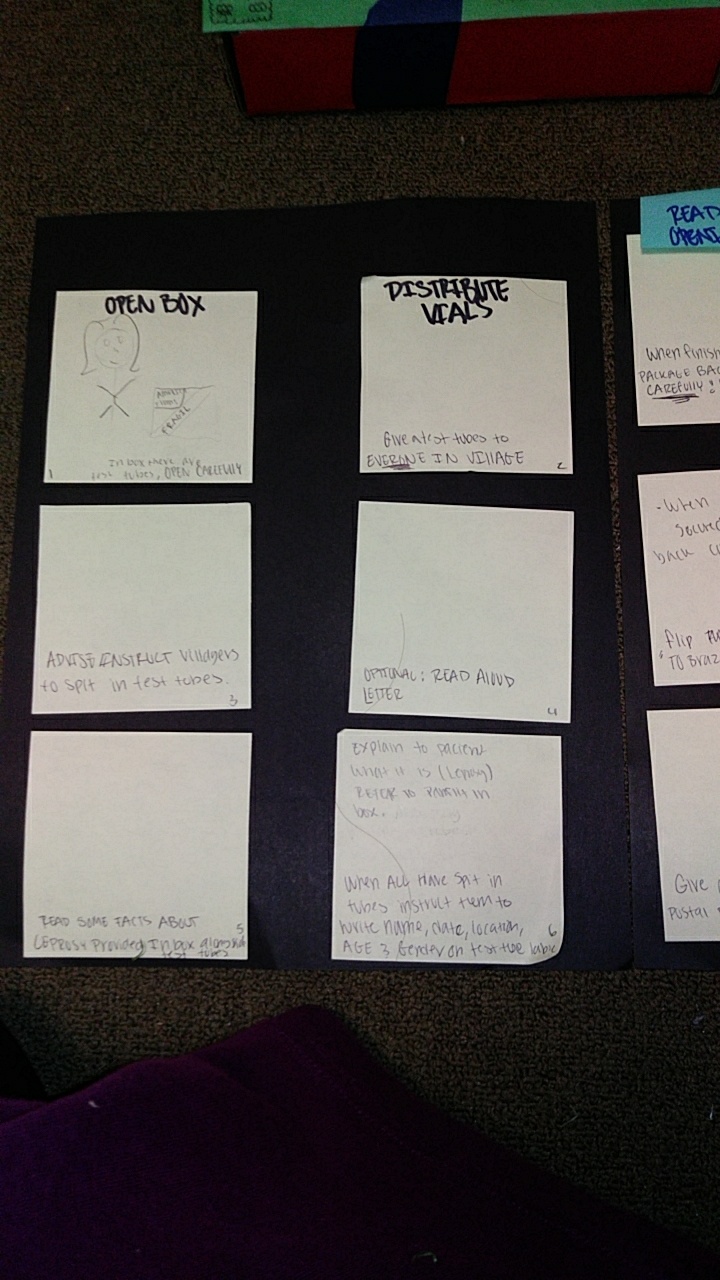 OPEN BOX
FRAGILE
In box there are
test tubes, OPEN CAREFULLY
1
DISTRIBUTE
VIALS
Give a test tubes to
EVERYONE IN VILLAGE
2
ADVISE/INSTRUCT villagers
to spit in test tubes.
3
OPTIONAL: READ ALOUD
LETTER
4
READ SOME FACTS ABOUT
LEPROSY Provided In box alongside
test tubes
5
Explain to pacient
what it is (Leprosy)
REFER TO in
box.
When ALL Have spit in
tubes instruct them to
write name, date, location,
AGE & Gender on test tube lable
6
READ
OPENI
When finish
PACKAGE BAC
CAREFULLY!
-When
secure
back
flip
TO BRAZ
Give
postal